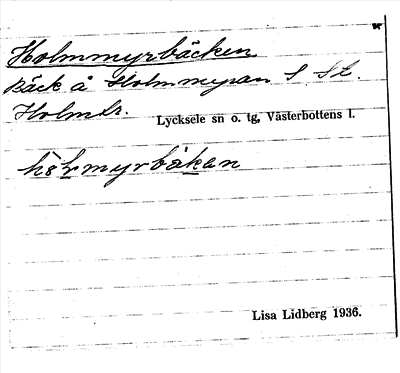 Holmmyrbäcken
Bäck å Holmmyran S
Holmtr.
Lycksele sn o. tg, Västerbottens l.
hólmyrbäkan
Lisa Lidberg 1936.